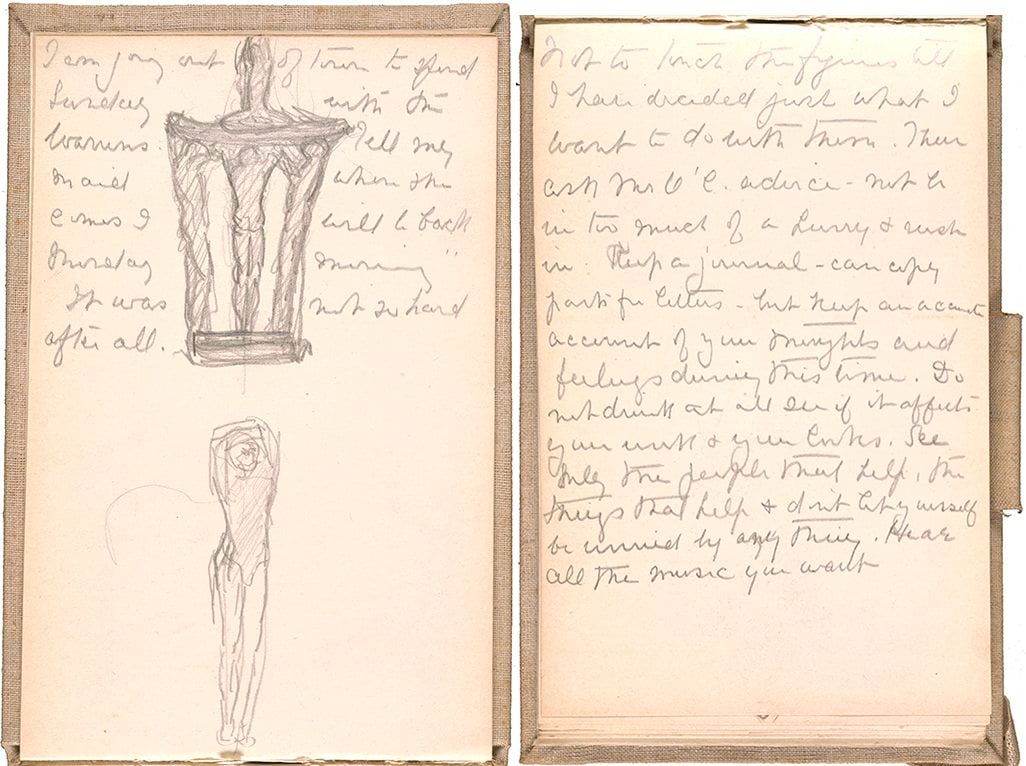 I am going out of town to spend
Sunday with the
Warrens. Tell my
maid when she
comes I will be back
Monday morning"
It was not so hard
after all.
Not to touch the figures till
I have decided just what I
want to do with them. Then
ask Mr O'C. advice - not be
in too much of a hurry & rush
in. Keep a journal - can copy
parts for letters - but keep an accurate
account of your thoughts and
feelings during this time. Do
not drink at all see if it affects
your work & your looks. See
only the people that help, the
things that help & don't let yourself
be worried by any thing. Hear
all the music you want